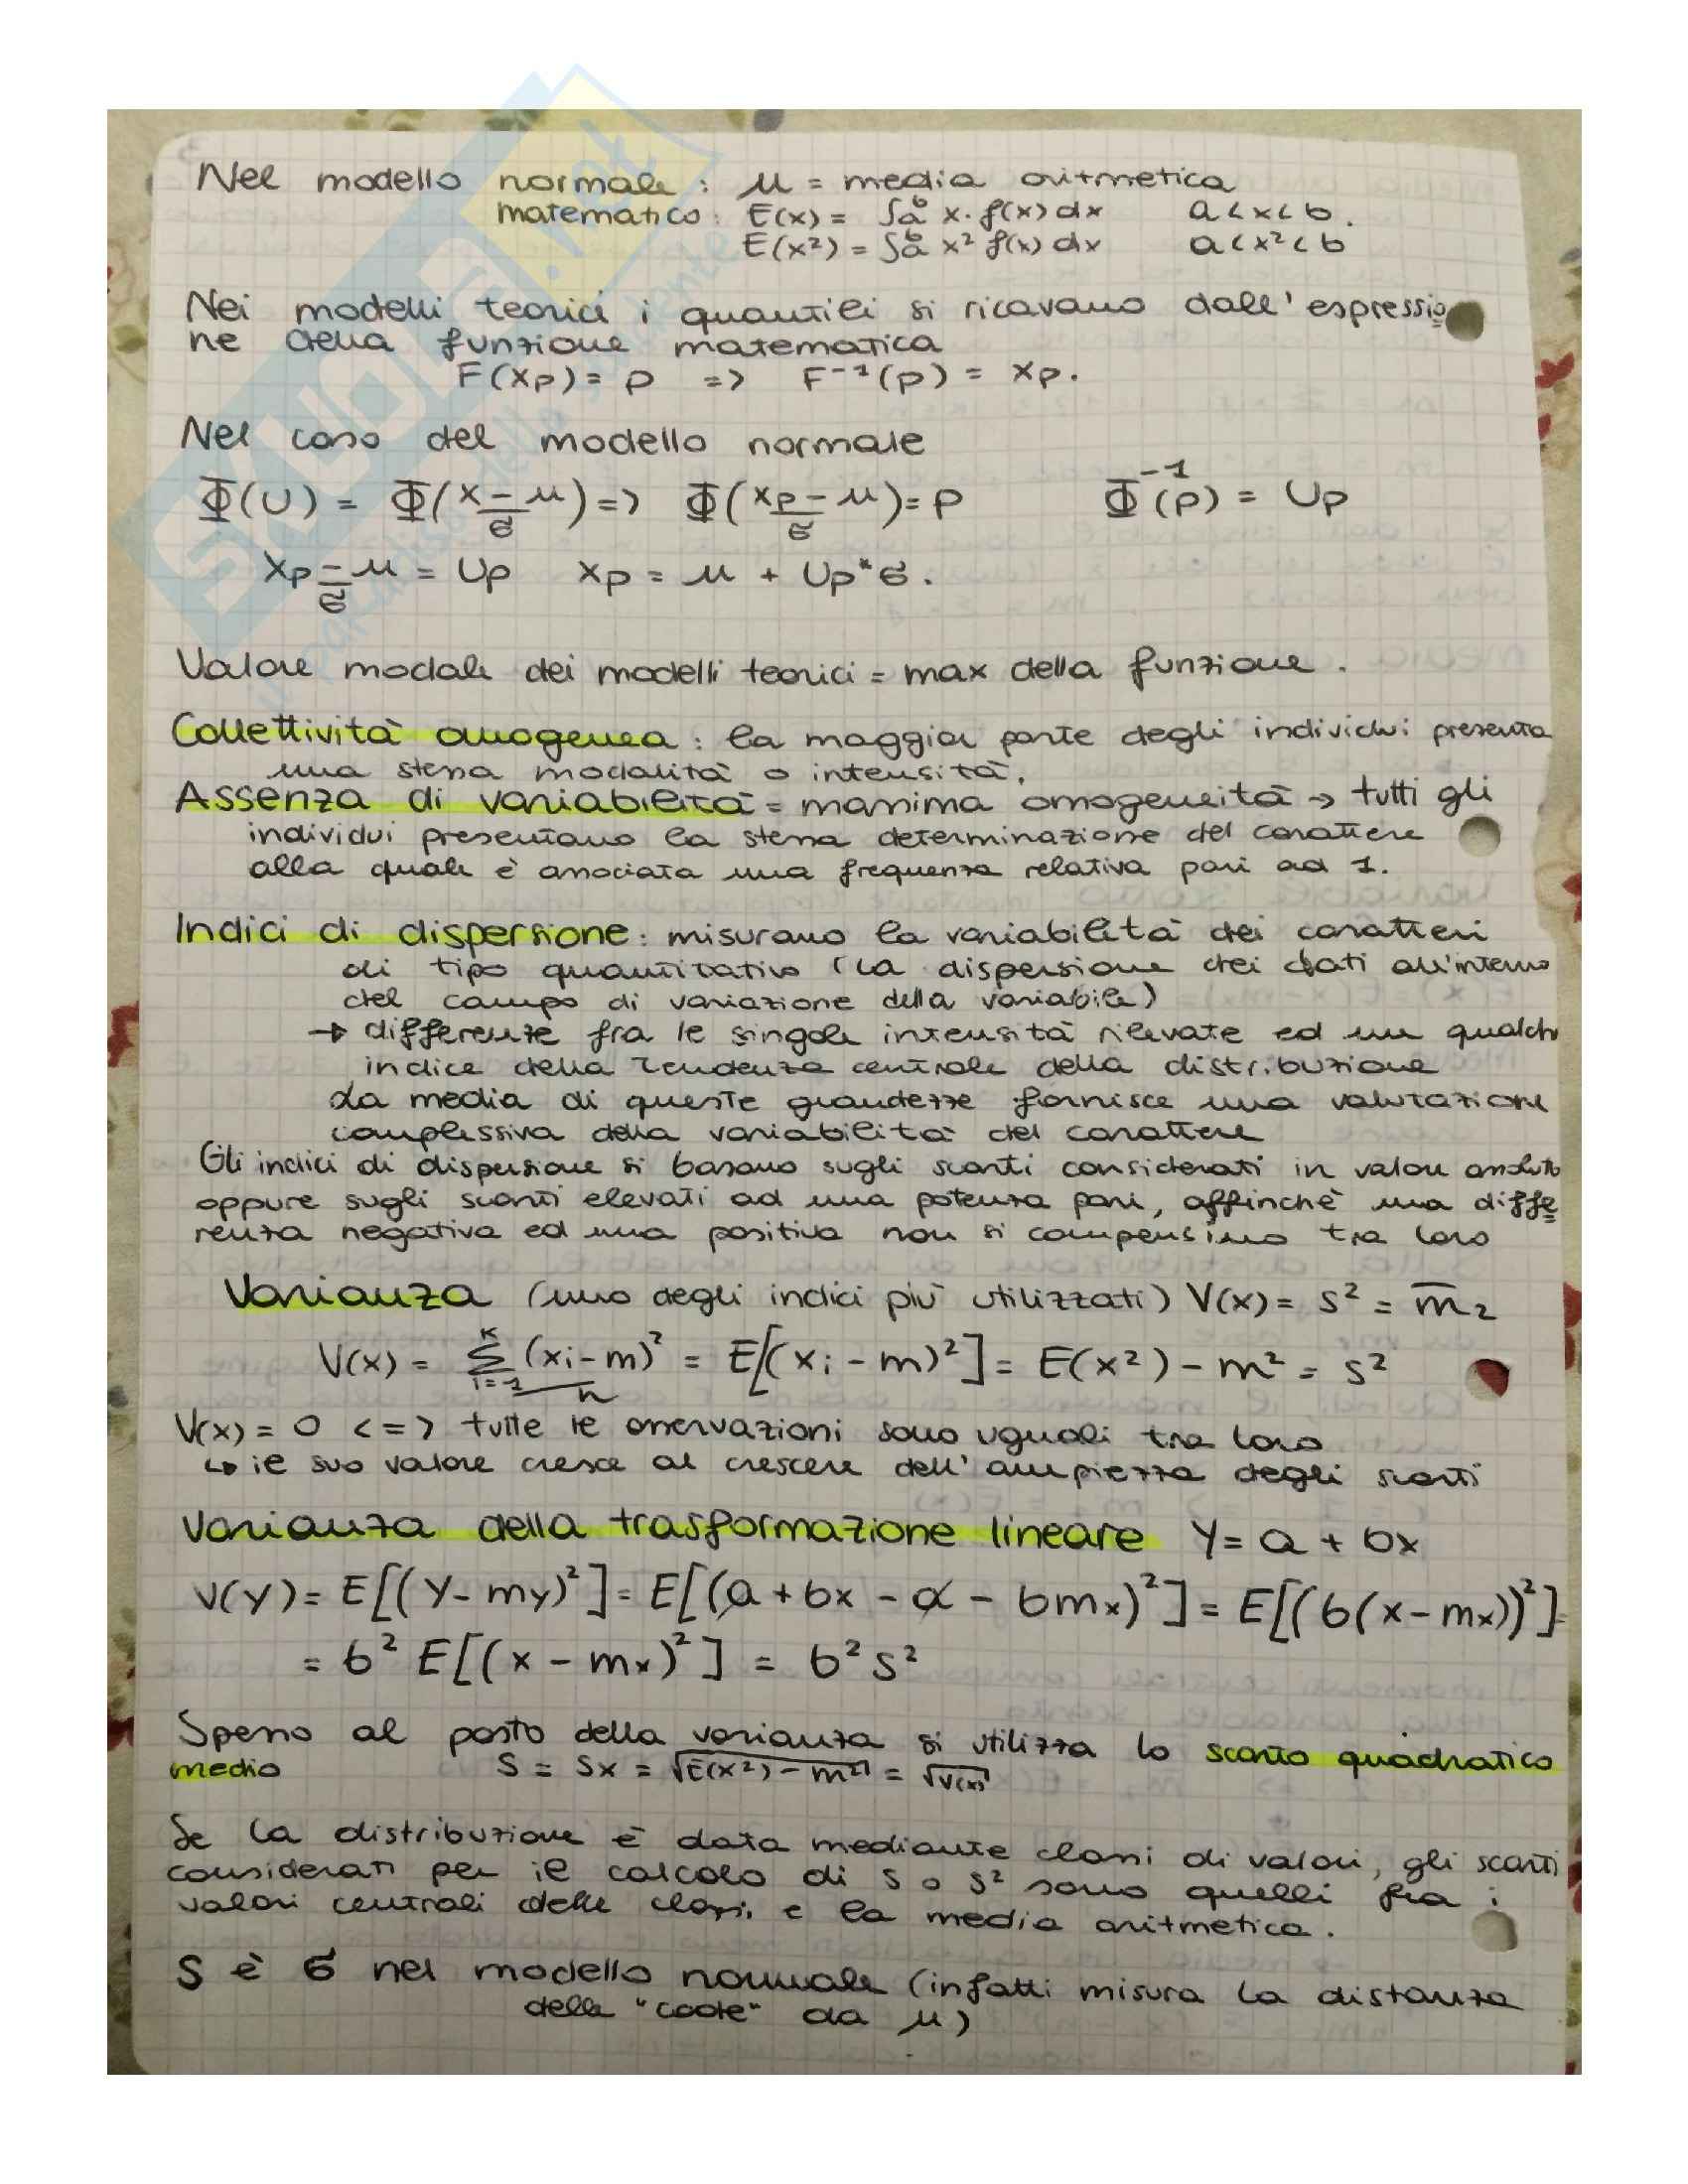 Nel modello normale : μ = media aritmetica
matematico: E(x) = ∫a^b x · f(x) dx a < x < b.
E(x²) = ∫a^b x² f(x) dx a < x² < b
Nei modelli teorici i quantili si ricavano dall'espressio
ne della funzione matematica
F(xp) = p => F⁻¹(p) = xp.
Nel caso del modello normale
Φ(U) = Φ((x-μ)/σ) => Φ((xp-μ)/σ) = p Φ⁻¹(p) = Up
(xp-μ)/σ = Up xp = μ + Up*σ.
Valore modale dei modelli teorici = max della funzione.
Collettività omogenea : la maggior parte degli individui presenta
una stessa modalità o intensità.
Assenza di variabilità = massima omogeneità → tutti gli
individui presentano la stessa determinazione del carattere
alla quale è associata una frequenza relativa pari ad 1.
Indici di dispersione: misurano la variabilità dei caratteri
di tipo quantitativo (la dispersione dei dati all'interno
del campo di variazione della variabile)
→ differenze fra le singole intensità rilevate ed un qualche
indice della tendenza centrale della distribuzione
La media di queste grandezze fornisce una valutazione
complessiva della variabilità del carattere
Gli indici di dispersione si basano sugli scarti considerati in valore assoluto
oppure sugli scarti elevati ad una potenza pari, affinchè una diffe
renza negativa ed una positiva non si compensino tra loro
Varianza (uno degli indici più utilizzati) V(x) = s² = m̅₂
V(x) = Σ_{i=1}^{k} (xi-m)²/n = E[(xi-m)²] = E(x²) - m² = s²
V(x) = 0 <=> tutte le osservazioni sono uguali tra loro
↳ il suo valore cresce al crescere dell'ampiezza degli scarti
Varianza della trasformazione lineare Y = a + bx
V(Y) = E[(Y-my)²] = E[(a + bx - a - bmx)²] = E[(b(x-mx))²] =
= b² E[(x-mx)²] = b²s²
Spesso al posto della varianza si utilizza lo scarto quadratico
medio S = Sx = √(E(x²) - m²) = √V(x)
Se la distribuzione è data mediante classi di valori, gli scarti
considerati per il calcolo di s o s² sono quelli fra i
valori centrali delle classi e la media aritmetica.
S è σ nel modello normale (infatti misura la distanza
delle "code" da μ)